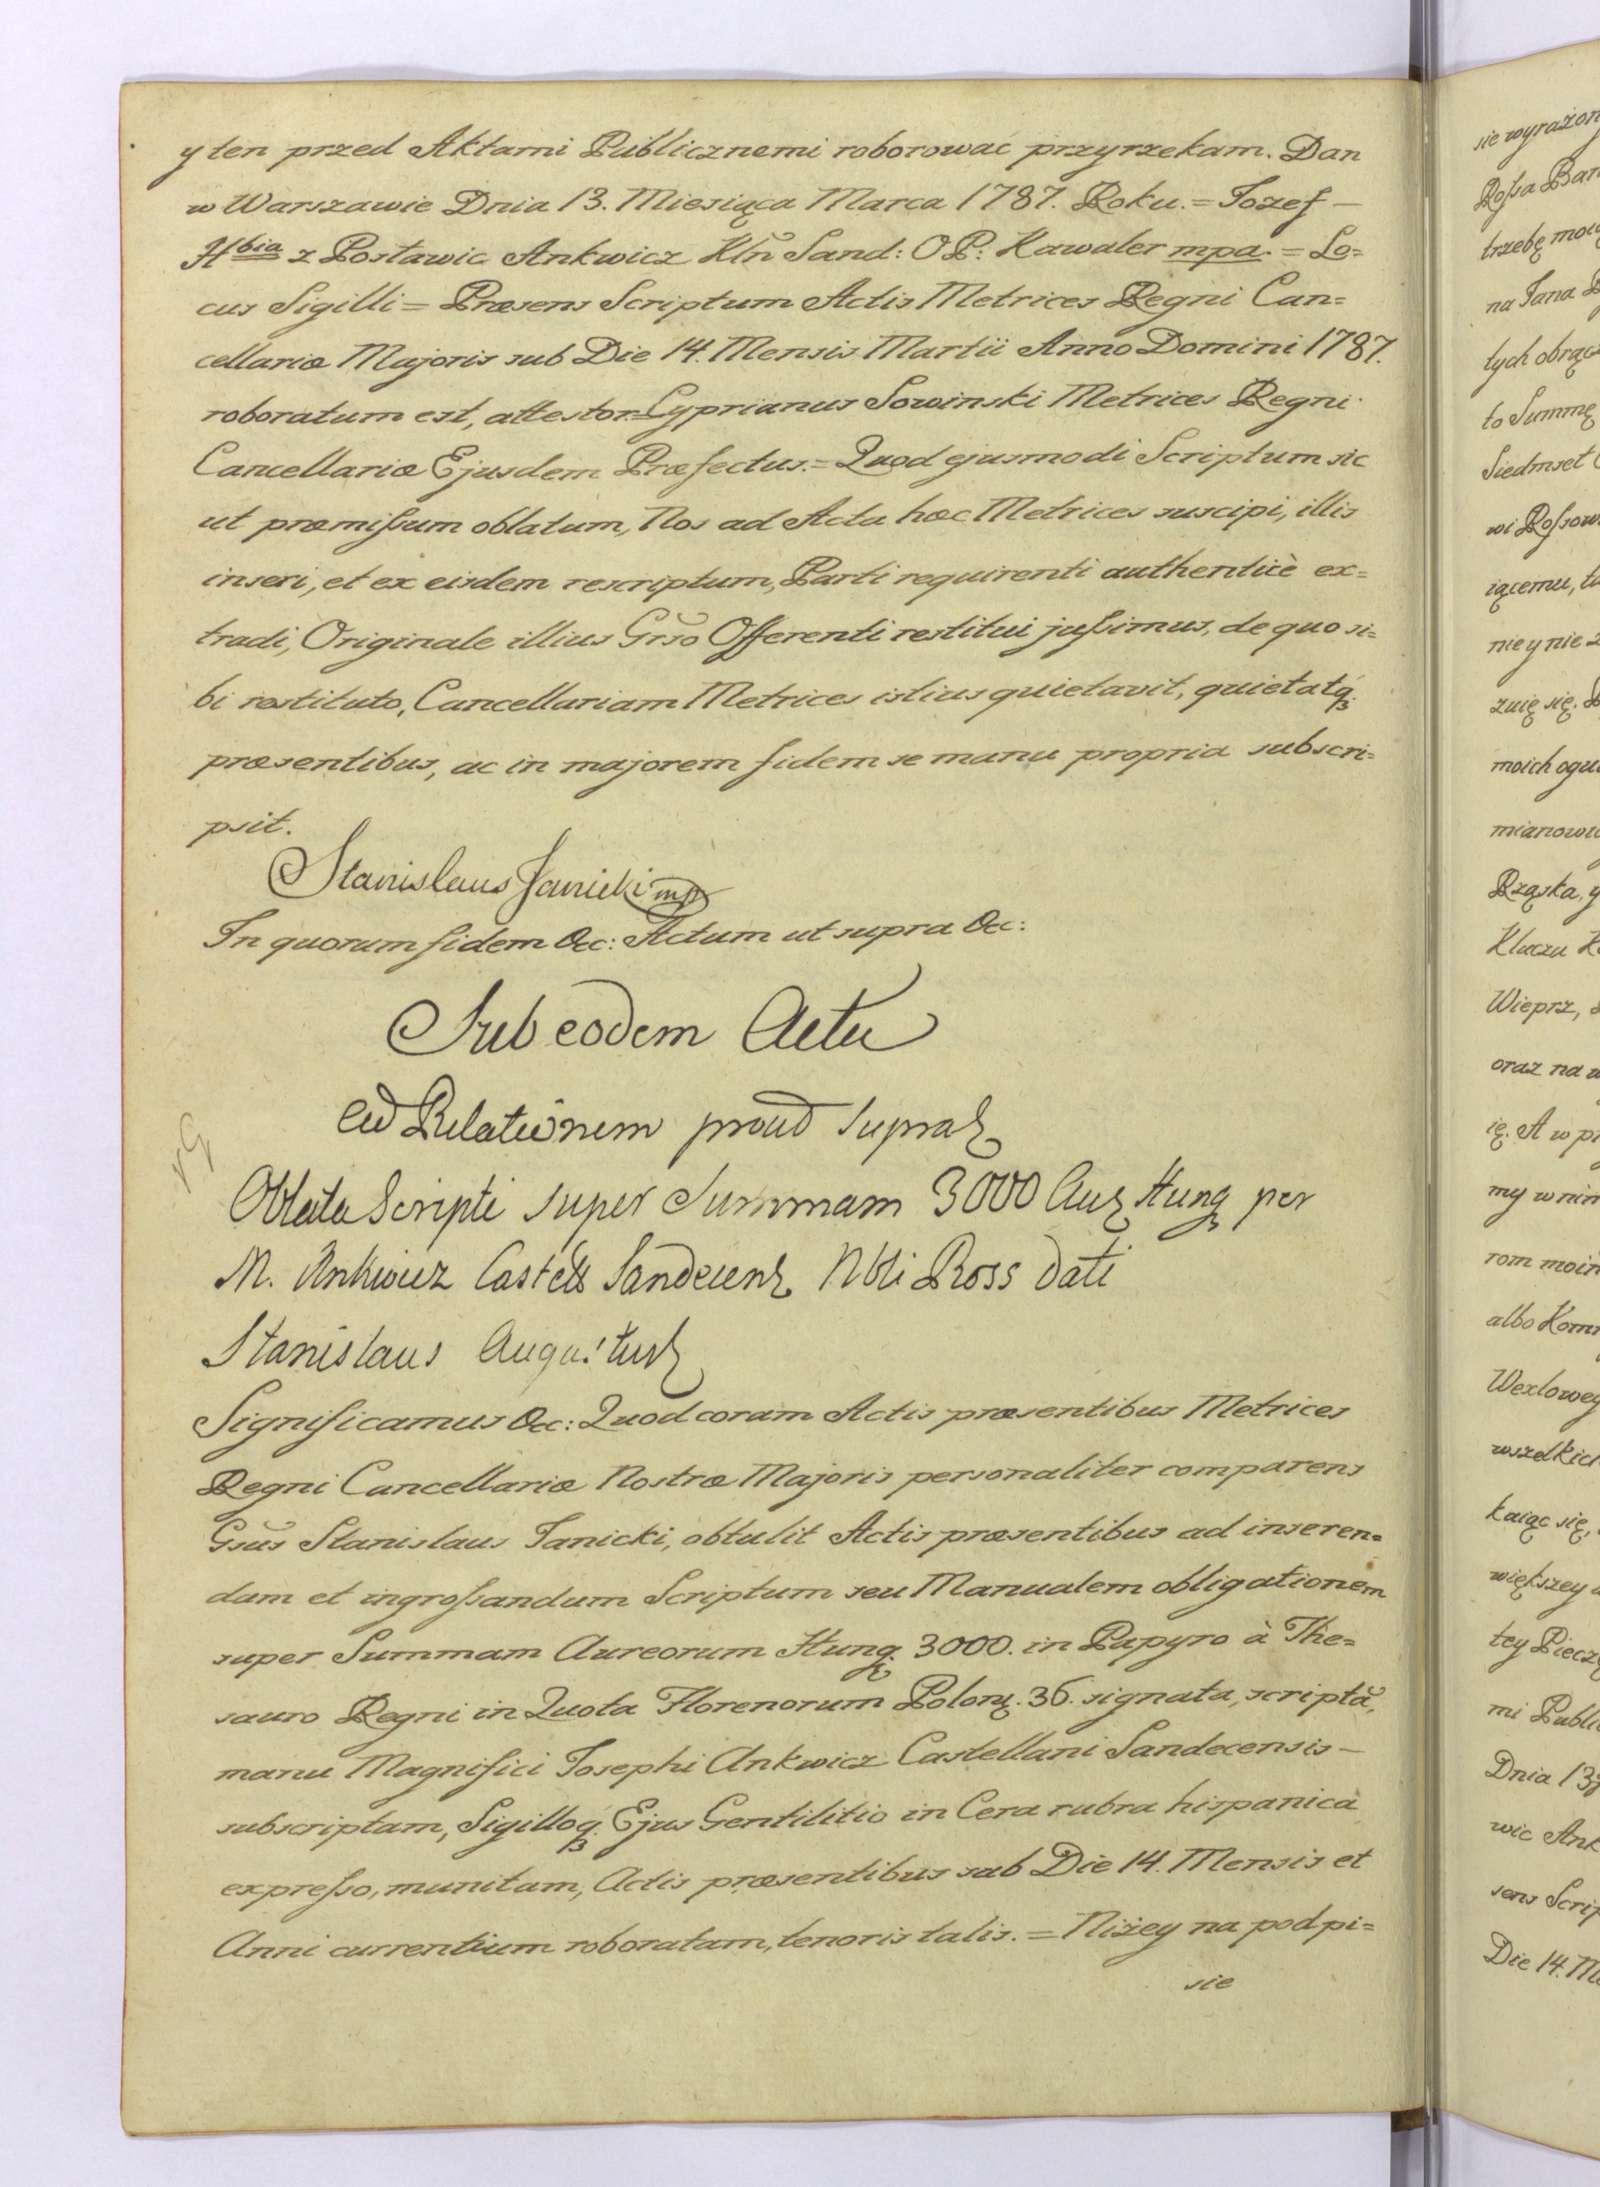 y ten przed Aktami Publicznemi roborować przyrzekam. Dan
w Warszawie Dnia 13. Miesiąca Marca 1787. Roku. = Jozef –
Hbia z Postawic Ankwicz Kłn Sand: O P: Kawaler mpa. = Lo=
cus Sigilli = Præsens Scriptum Actis Metrices Regni Can=
cellariæ Majoris sub Die 14. Mensis Martii Anno Domini 1787.
roboratum est, attestor = Cyprianus Sowinski Metrices Regni
Cancellariæ Ejusdem Præfectus. = Quod ejusmodi Scriptum sic
ut præmissum oblatum, Nos ad Acta hæc Metrices suscipi, illis
inseri, et ex eisdem rescriptum, Parti requirenti authenticè ex=
tradi, Originale illius Grso Offerenti restitui jussimus, de quo si=
bi restituto, Cancellariam Metrices istius quietavit, quietatq.
præsentibus, ac in majorem fidem se manu propria subscri=
psit.
Stanislaus Janicki mp
In quorum fidem &c: Actum ut supra &c:
Sub eodem Actu
Ad Relationem prout supra
Oblata Scripti super Summam 3000 Aur Hung per
M. Ankwicz Castell Sandecens Nbli Ross dati
Stanislaus Augustus
Significamus &c: Quod coram Actis præsentibus Metrices
Regni Cancellariæ Nostræ Majoris personaliter comparens
Gsus Stanislaus Janicki, obtulit Actis præsentibus ad inseren=
dam et ingrossandum Scriptum seu Manualem obligationem
super Summam Aureorum Hung. 3000. in Papyro à The=
sauro Regni in Quota Florenorum Polon. 36. signata, scriptã,
manu Magnifici Josephi Ankwicz Castellani Sandecensis –
subscriptam, Sigilloq. Ejus Gentilitio in Cera rubra hispanica
expresso, munitam, Actis præsentibus sub Die 14. Mensis et
Anni currentium roboratam, tenoris talis. = Niżey na podpi=
sie
sie wyrażon
Rossa Ban
trzebę mou
na Jana
tych obrącz
to Summę
Siedmset
wi Rossow
iącemu, t
nie y nie z
zuię się.
moich ogu
mianow
Rząska, y
Kluczu K
Wieprz,
oraz na w
ię. A w p
my w nim
rom moim
albo Kom
Wexlowey
wszelkich
kaiąc się,
większey
tey Piecz
mi Public
Dnia 13
wic Ank
sens Scrip
Die 14. M